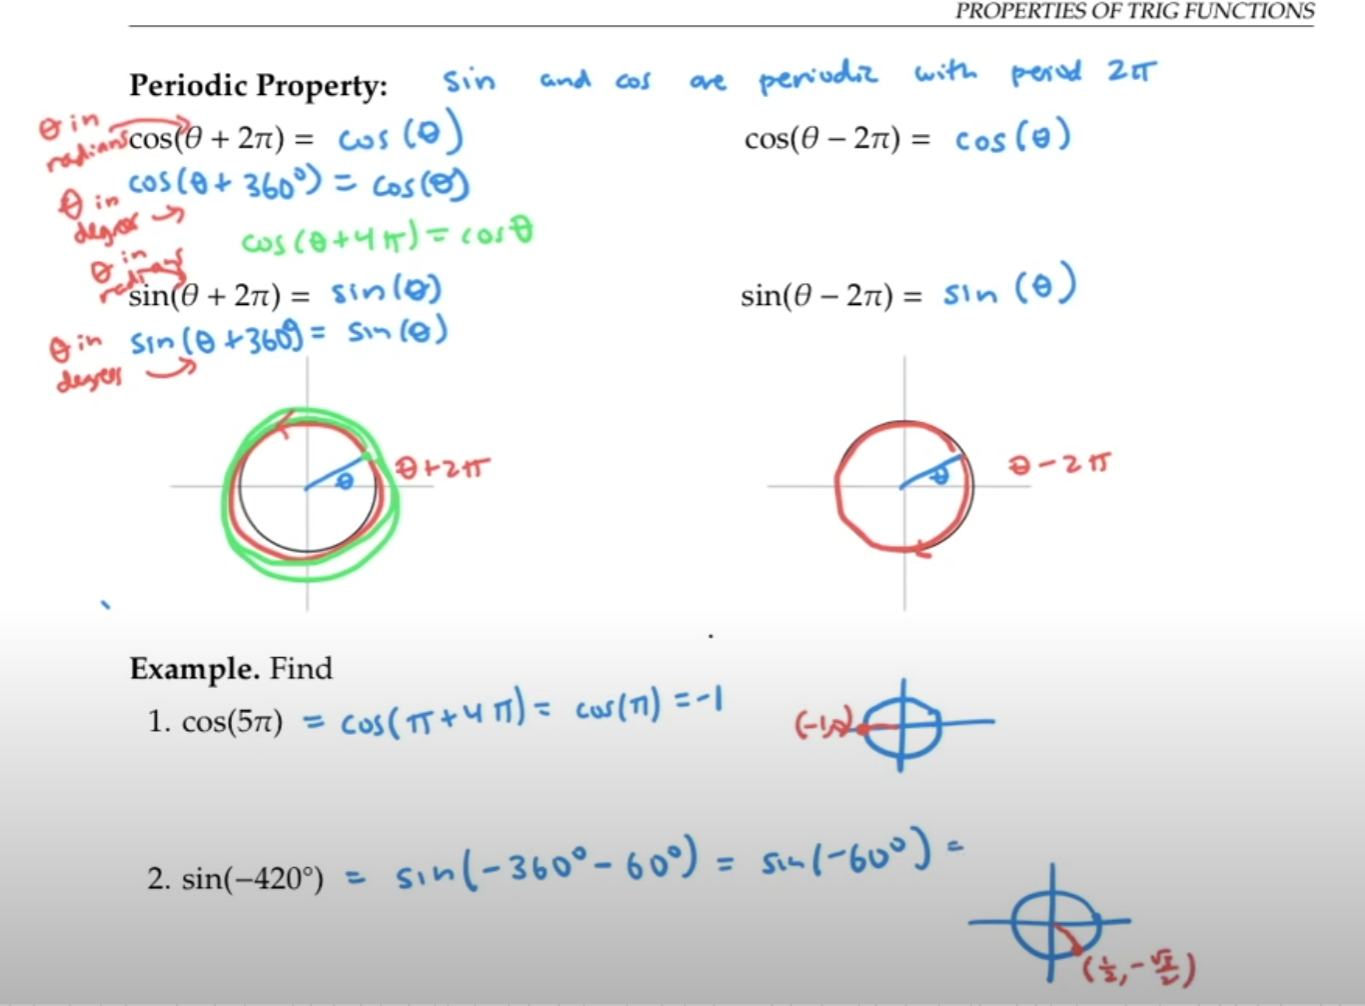 PROPERTIES OF TRIG FUNCTIONS
Periodic Property: sin and cos are periodic with period 2π
θ in radians cos(θ + 2π) = cos(θ)
cos(θ − 2π) = cos(θ)
θ in degrees → cos(θ + 360°) = cos(θ)
cos(θ+4π) = cosθ
θ in radians sin(θ + 2π) = sin(θ)
sin(θ − 2π) = sin(θ)
θ in degrees → sin(θ +360°) = sin(θ)
θ
θ+2π
θ
θ-2π
Example. Find
1. cos(5π) = cos(π+4π) = cos(π) = -1
(-1,0)
2. sin(−420°) = sin(-360° - 60°) = sin(-60°) =
(1/2, -√3/2)